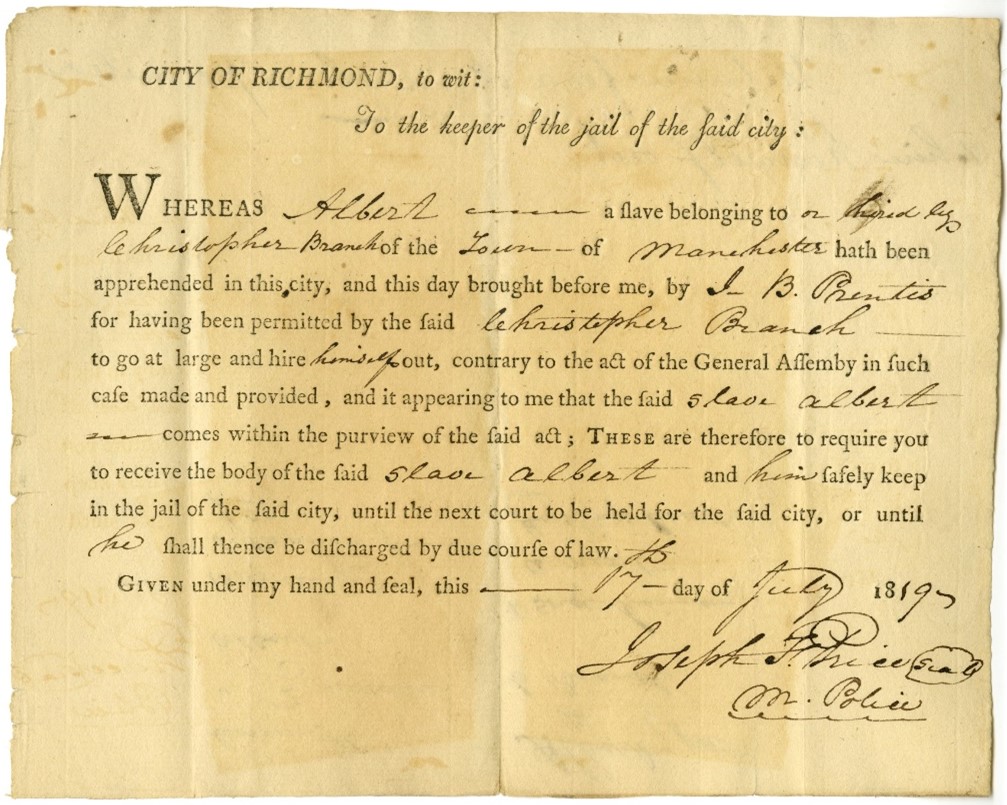 CITY OF RICHMOND, to wit:
To the keeper of the jail of the ſaid city:
WHEREAS Albert a ſlave belonging to or hired by
Christopher Branch of the Town - of Manchester hath been
apprehended in this city, and this day brought before me, by J- B. Prentis
for having been permitted by the ſaid Christopher Branch
to go at large and hire himself out, contrary to the act of the General Aſſemby in ſuch
caſe made and provided, and it appearing to me that the ſaid slave albert
comes within the purview of the ſaid act; THESE are therefore to require you
to receive the body of the ſaid slave albert and him ſafely keep
in the jail of the ſaid city, until the next court to be held for the ſaid city, or until
he ſhall thence be diſcharged by due courſe of law.
GIVEN under my hand and ſeal, this 17th day of July 1819
Joseph F. Price Seal
M. Police